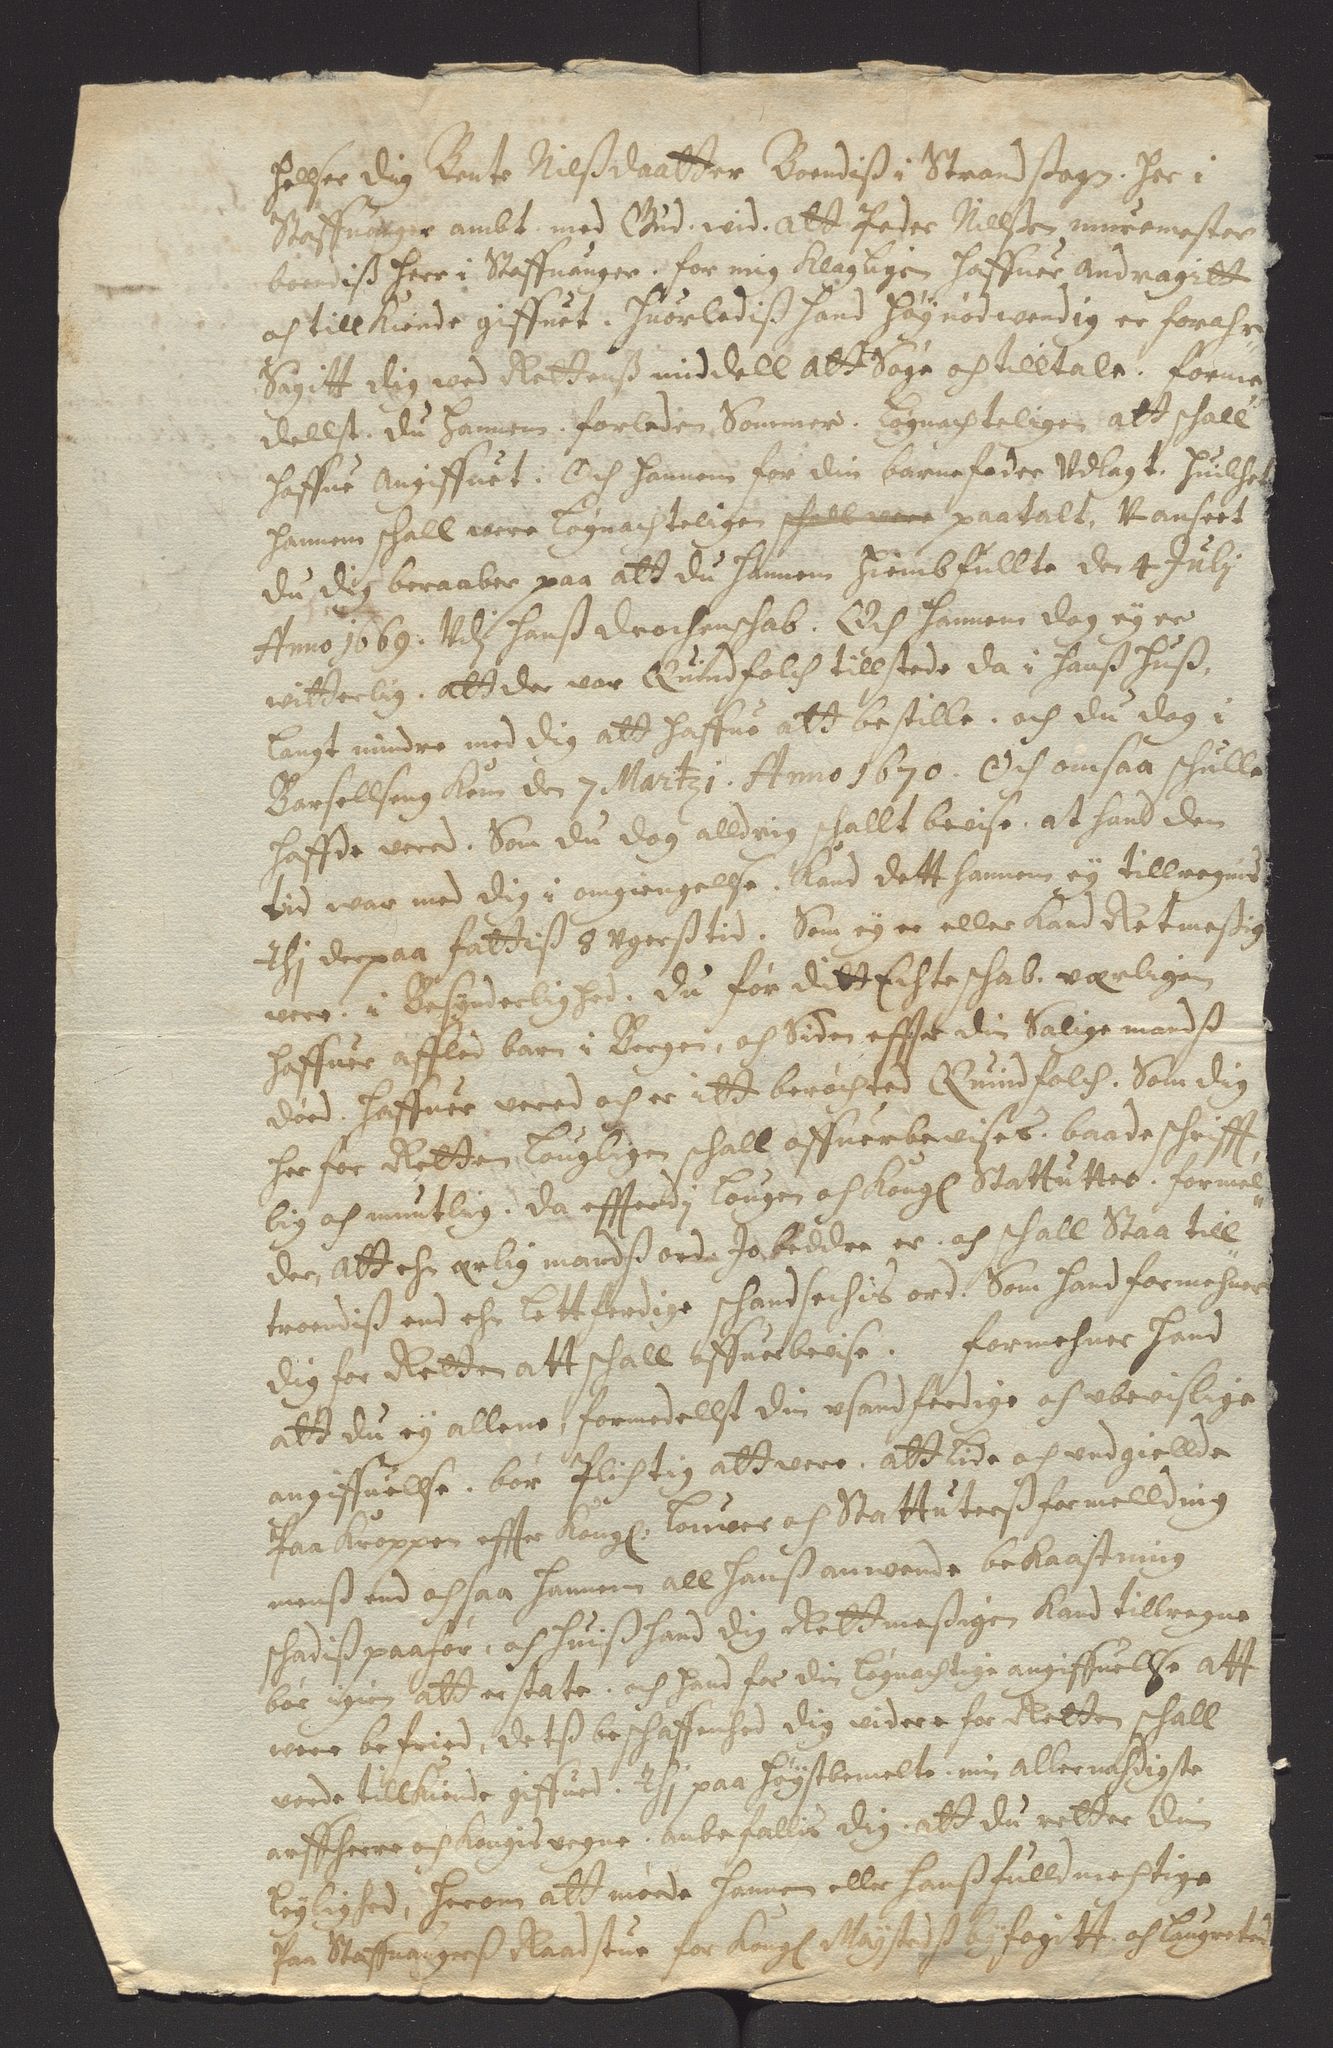 Helser dig Bente Nilßdaatter Boendiß i Strand sogn. Her i
Staffuanger ambt. med Gud. vid. att Peder Nillßen muremester
boendiß herr i Staffuanger. for mig klagligen haffuer andragitt
och till kiende giffuet. huorlediß hand höynödvendig er forahr-
sagitt dig ved Rettenß middell att söge och tilltale. forme-
dellst. du hannem. forleden Sommer. lögnachteligen att schall
haffue angiffuet. Och hannem for din barnefader Vdlagt. huilchet
hannem schall vere lögnachteligen schall vere paatalt, Vanseet
du dig beraaber paa att du hannem hiembfullte den 4 Julij
Anno 1669. Vdj hanß drochenschab. Och hannem dog ey er
vitterlig. att der var Quindfolch tillstede da i hanß huß.
langt mindre med dig att haffue att bestille. och du dog i
Barsellseng kom den 7 Martzi. Anno 1670. Och omsaa schulle
haffde vered. Som du dog alldrig schallt bevise. at hand den
tid war med dig i omgiengellse. kand dett hannem ey tillregnis
Thj derpaa fattiß 8 Vgerß tid. Som ey er eller kand Retmeßig
vere. i Besynderlighed. du for ditt Echteschab. værligen
haffuer affled barn i Bergen, och Siden effter din Salige mandß
död. haffuer vered och er itt beröchted Quindfolch. Som dig
her for Retten lougligen schall offuerbevises. baade schrifft,
lig och muntlig. da effterdj Lougen och kongl Stattutter. formel-
der, att ehn ærlig mandß ord Jo beddre er. och schall Staa till
troendiß end ehn lettferdige schandsechis ord. Som hand formehner
dig for Retten att schall offuerbevise. formehner hand
att du ey allene, formedellst din vsandferdige och vbevislige
angiffuellse. bör Plichtig att vere. att lide och vndgiellde
Paa kroppen effter kongl: Lower och Stattuterß formellding
menß end ochsaa hannem all hanß anvende bekaastning
schadißpaafør, och huiß hand dig Rettmeßigen kand tillregne
bör igien att erstate. och hand for din lögnachtige angiffuellße att
vere befried, detß beschaffenhed dig videre for Retten schall
vorde tillkiende giffued. Thj paa höystbemelte min allernaadigste
arffherre och kongis vegne. anbefallis dig. att du retter din
leylighed, herom att möde hannem eller hanß fulldmechtige
Paa Staffuangerß Raadstue for kongl Maÿstedß byfogitt och laugretted